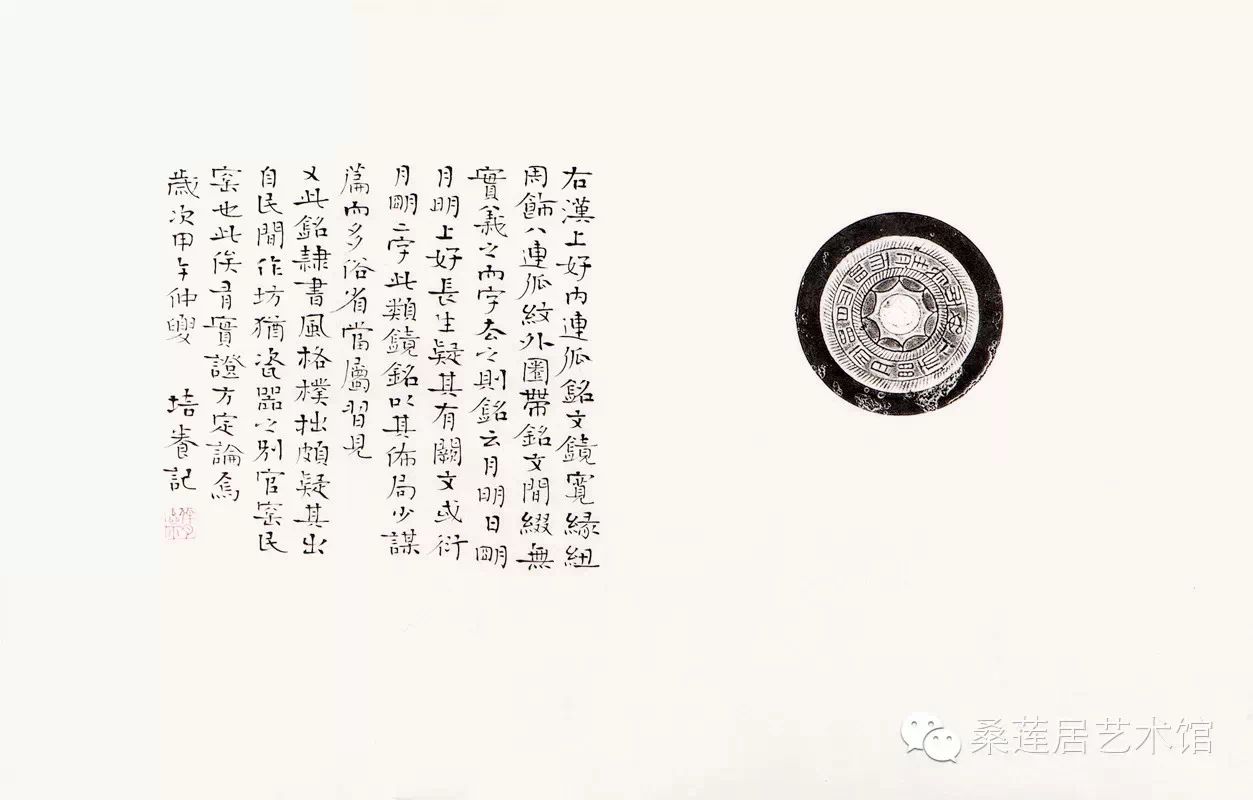 右漢上好內連弧銘文鏡寬緣紐
周飾八連弧紋外圈帶銘文間綴無
實義之而字去之則銘云月明日朙
月明上好長生疑其有闕文或衍
月朙二字此類鏡銘以其佈局少謀
篇而多俗省當屬習見
又此銘隸書風格樸拙頗疑其出
自民間作坊猶瓷器之別官窯民
窯也此俟有實證方定論焉
歲次甲午仲嫂 培養記
桑莲居艺术馆